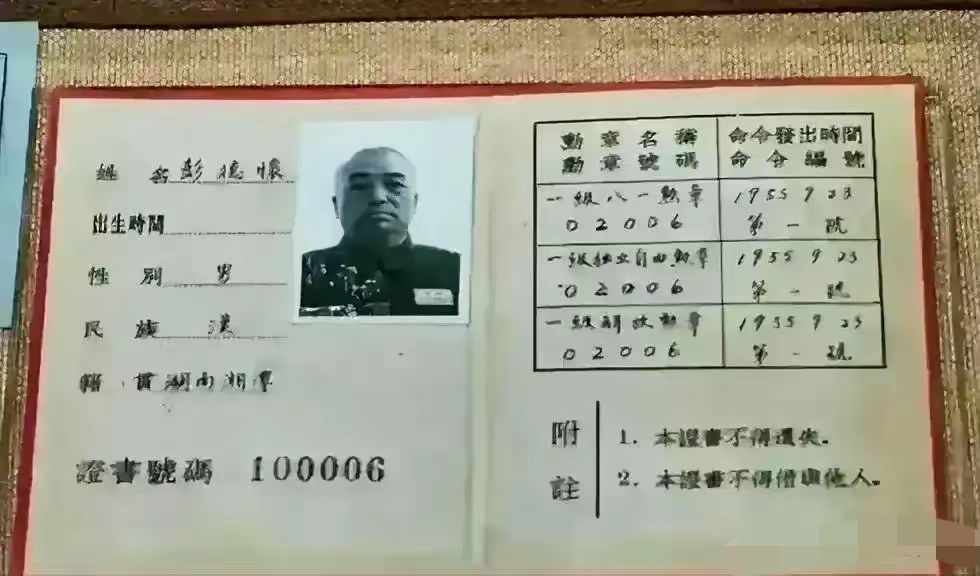 姓名彭德懷
出生時間
性別 男
民族 漢
籍貫湖南湘潭
證書號碼 100006
勳章名稱 命令發出時間
勳章號碼 命令編號
一級八一勳章 1955 9 23
02006 第一號
一級獨立自由勳章 1955 9 23
02006 第一號
一級解放勳章 1955 9 23
02006 第一號
附註
1. 本證書不得遺失。
2. 本證書不得借與他人。